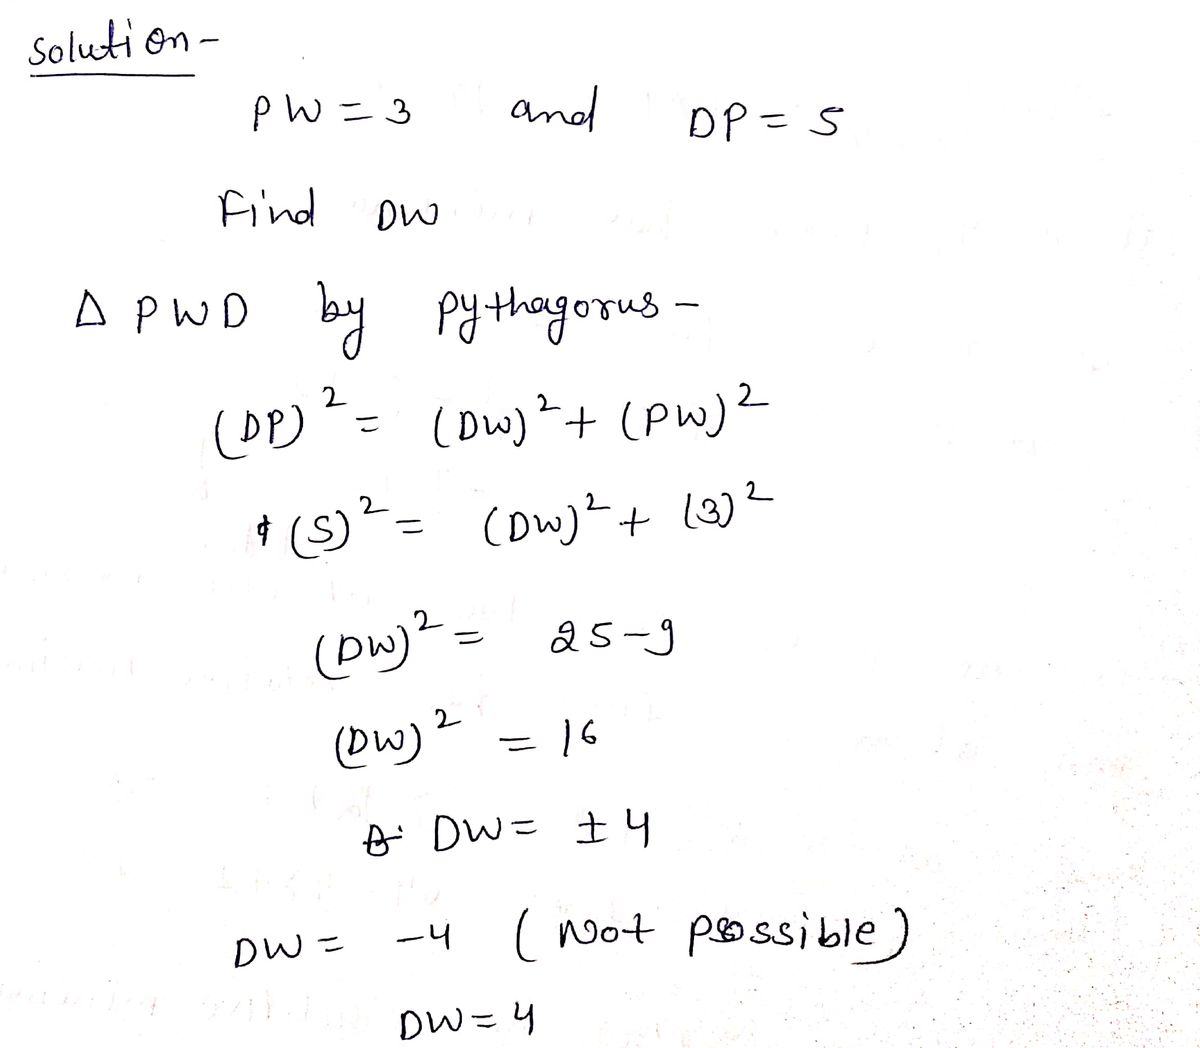 Solution-
PW = 3 and DP = 5
Find DW
Δ PWD by pythagorus -
(DP)² = (DW)² + (PW)²
(5)² = (DW)² + (3)²
(DW)² = 25-9
(DW)² = 16
DW = ± 4
DW = -4 ( Not possible)
DW = 4